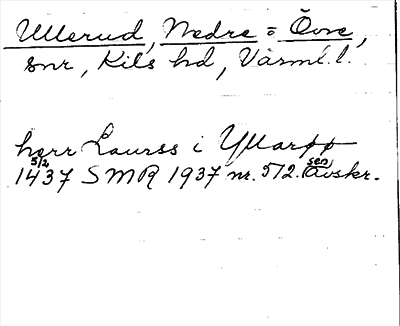 Ullerud, Nedre o Övre,
snr, Kils hd, Värml. l.
herr Laurss i Yllarpp
5/2 sen.
1437 SMR 1937 nr. 512. Avskr.